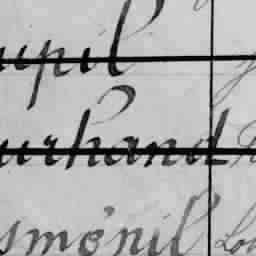 upil
urhand
smönil Lo